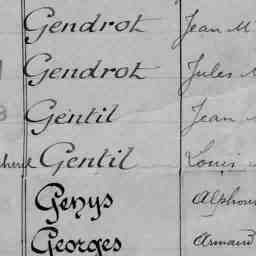 Gendrot Jean M
Gendrot Jules M
Gentil Jean
Gentil Louis
Genys Alphon
Georges Armand